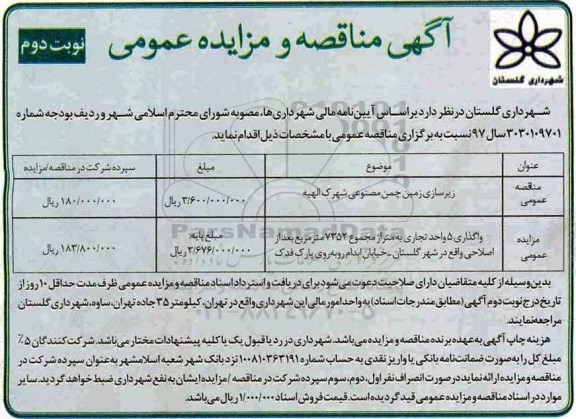 آگهی مناقصه و مزایده عمومی
نوبت دوم
شهرداری گلستان
شهرداری گلستان در نظر دارد بر اساس آیین نامه مالی شهرداری ها، مصوبه شورای محترم اسلامی شهر و ردیف بودجه شماره
۳۰۳۰۱۰۹۷۰۱ سال ۹۷ نسبت به برگزاری مناقصه عمومی با مشخصات ذیل اقدام نماید.
عنوان موضوع مبلغ سپرده شرکت در مناقصه/مزایده
مناقصه عمومی زیرسازی زمین چمن مصنوعی شهرک الهیه ۳/۶۰۰/۰۰۰/۰۰۰ ریال ۱۸۰/۰۰۰/۰۰۰ ریال
مزایده عمومی واگذاری ۵ واحد تجاری به متراژ مجموع ۷۳۵۲ متر مربع بعد از مبلغ پایه ۱۸۳/۸۰۰/۰۰۰ ریال
اصلاحی واقع در شهر گلستان - خیابان امام روبه روی پارک فدک ۳/۶۷۶/۰۰۰/۰۰۰ ریال
بدین وسیله از کلیه متقاضیان دارای صلاحیت دعوت می شود برای دریافت و استرداد اسناد مناقصه و مزایده عمومی ظرف مدت حداقل ۱۰ روز از
تاریخ درج نوبت دوم آگهی (مطابق مندرجات اسناد) به واحد امور مالی این شهرداری واقع در تهران، کیلومتر ۳۵ جاده تهران، ساوه، شهرداری گلستان
مراجعه نمایند.
هزینه چاپ آگهی به عهده برنده مناقصه و مزایده می باشد. شهرداری در رد یا قبول یک یا کلیه پیشنهادات مختار می باشد. شرکت کنندگان ۵٪
مبلغ کل را به صورت ضمانت نامه بانکی یا واریز نقدی به حساب شماره ۱۰۰۸۱۰۳۶۳۱۹۱ نزد بانک شهر شعبه اسلامشهر به عنوان سپرده شرکت در
مناقصه و مزایده ارائه نماید در صورت انصراف نفر اول، دوم، سوم سپرده شرکت در مناقصه / مزایده ایشان به نفع شهرداری ضبط خواهد گردید. سایر
موارد در اسناد مناقصه و مزایده عمومی قید گردیده است. قیمت فروش اسناد ۱/۰۰۰/۰۰۰ ریال می باشد.
ParsNamadData
۰۲۱-۸۸۳۴۹۶۷۰-۵